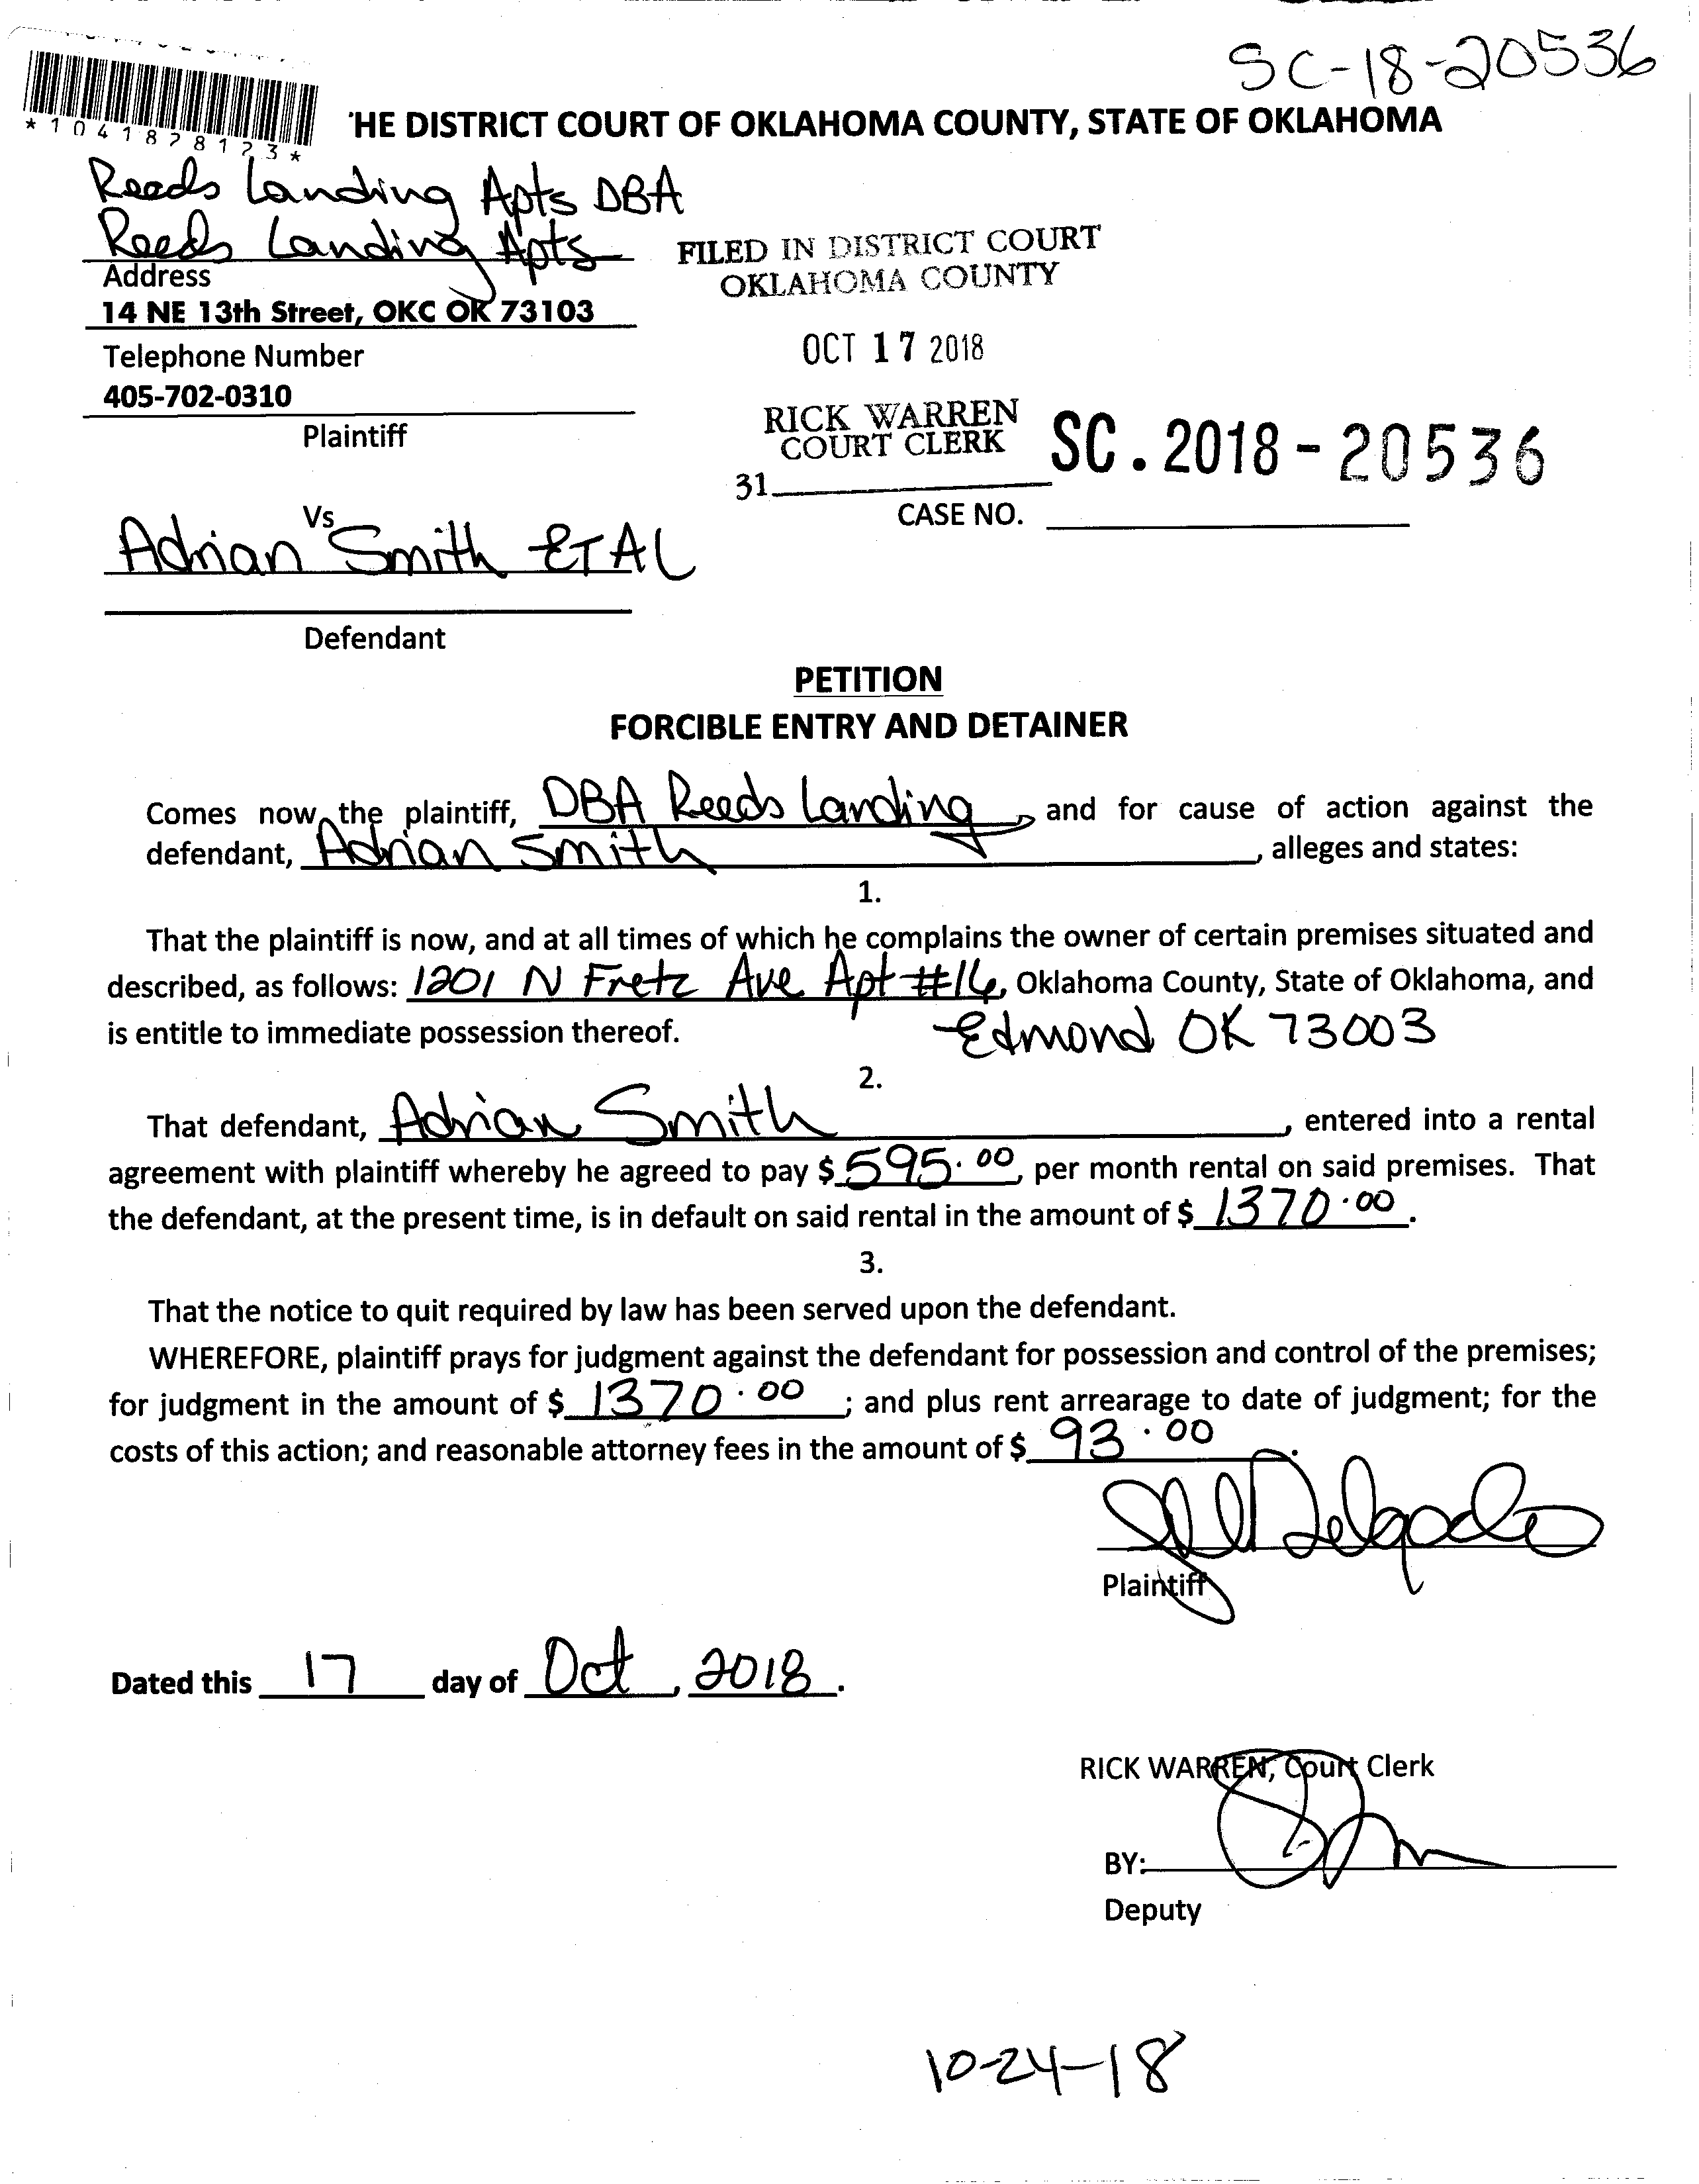 SC-18-20536
*1041828123*
'HE DISTRICT COURT OF OKLAHOMA COUNTY, STATE OF OKLAHOMA
Reeds Landing Apts DBA
Reeds Landing Apts
Address
14 NE 13th Street, OKC OK 73103
Telephone Number
405-702-0310
Plaintiff
FILED IN DISTRICT COURT
OKLAHOMA COUNTY
OCT 17 2018
RICK WARREN
COURT CLERK
31
SC. 2018-20536
CASE NO.
Vs
Adrian Smith ET AL
Defendant
PETITION
FORCIBLE ENTRY AND DETAINER
Comes now the plaintiff, DBA Reeds Landing, and for cause of action against the
defendant, Adrian Smith, alleges and states:
1.
That the plaintiff is now, and at all times of which he complains the owner of certain premises situated and
described, as follows: 1201 N Fretz Ave Apt #16, Oklahoma County, State of Oklahoma, and
is entitle to immediate possession thereof. Edmond OK 73003
2.
That defendant, Adrian Smith, entered into a rental
agreement with plaintiff whereby he agreed to pay $ 595.00, per month rental on said premises. That
the defendant, at the present time, is in default on said rental in the amount of $ 1370.00.
3.
That the notice to quit required by law has been served upon the defendant.
WHEREFORE, plaintiff prays for judgment against the defendant for possession and control of the premises;
for judgment in the amount of $ 1370.00; and plus rent arrearage to date of judgment; for the
costs of this action; and reasonable attorney fees in the amount of $ 93.00.
Delgado
Plaintiff
Dated this 17 day of Oct, 2018.
RICK WARREN, Court Clerk
BY:
Deputy
10-24-18